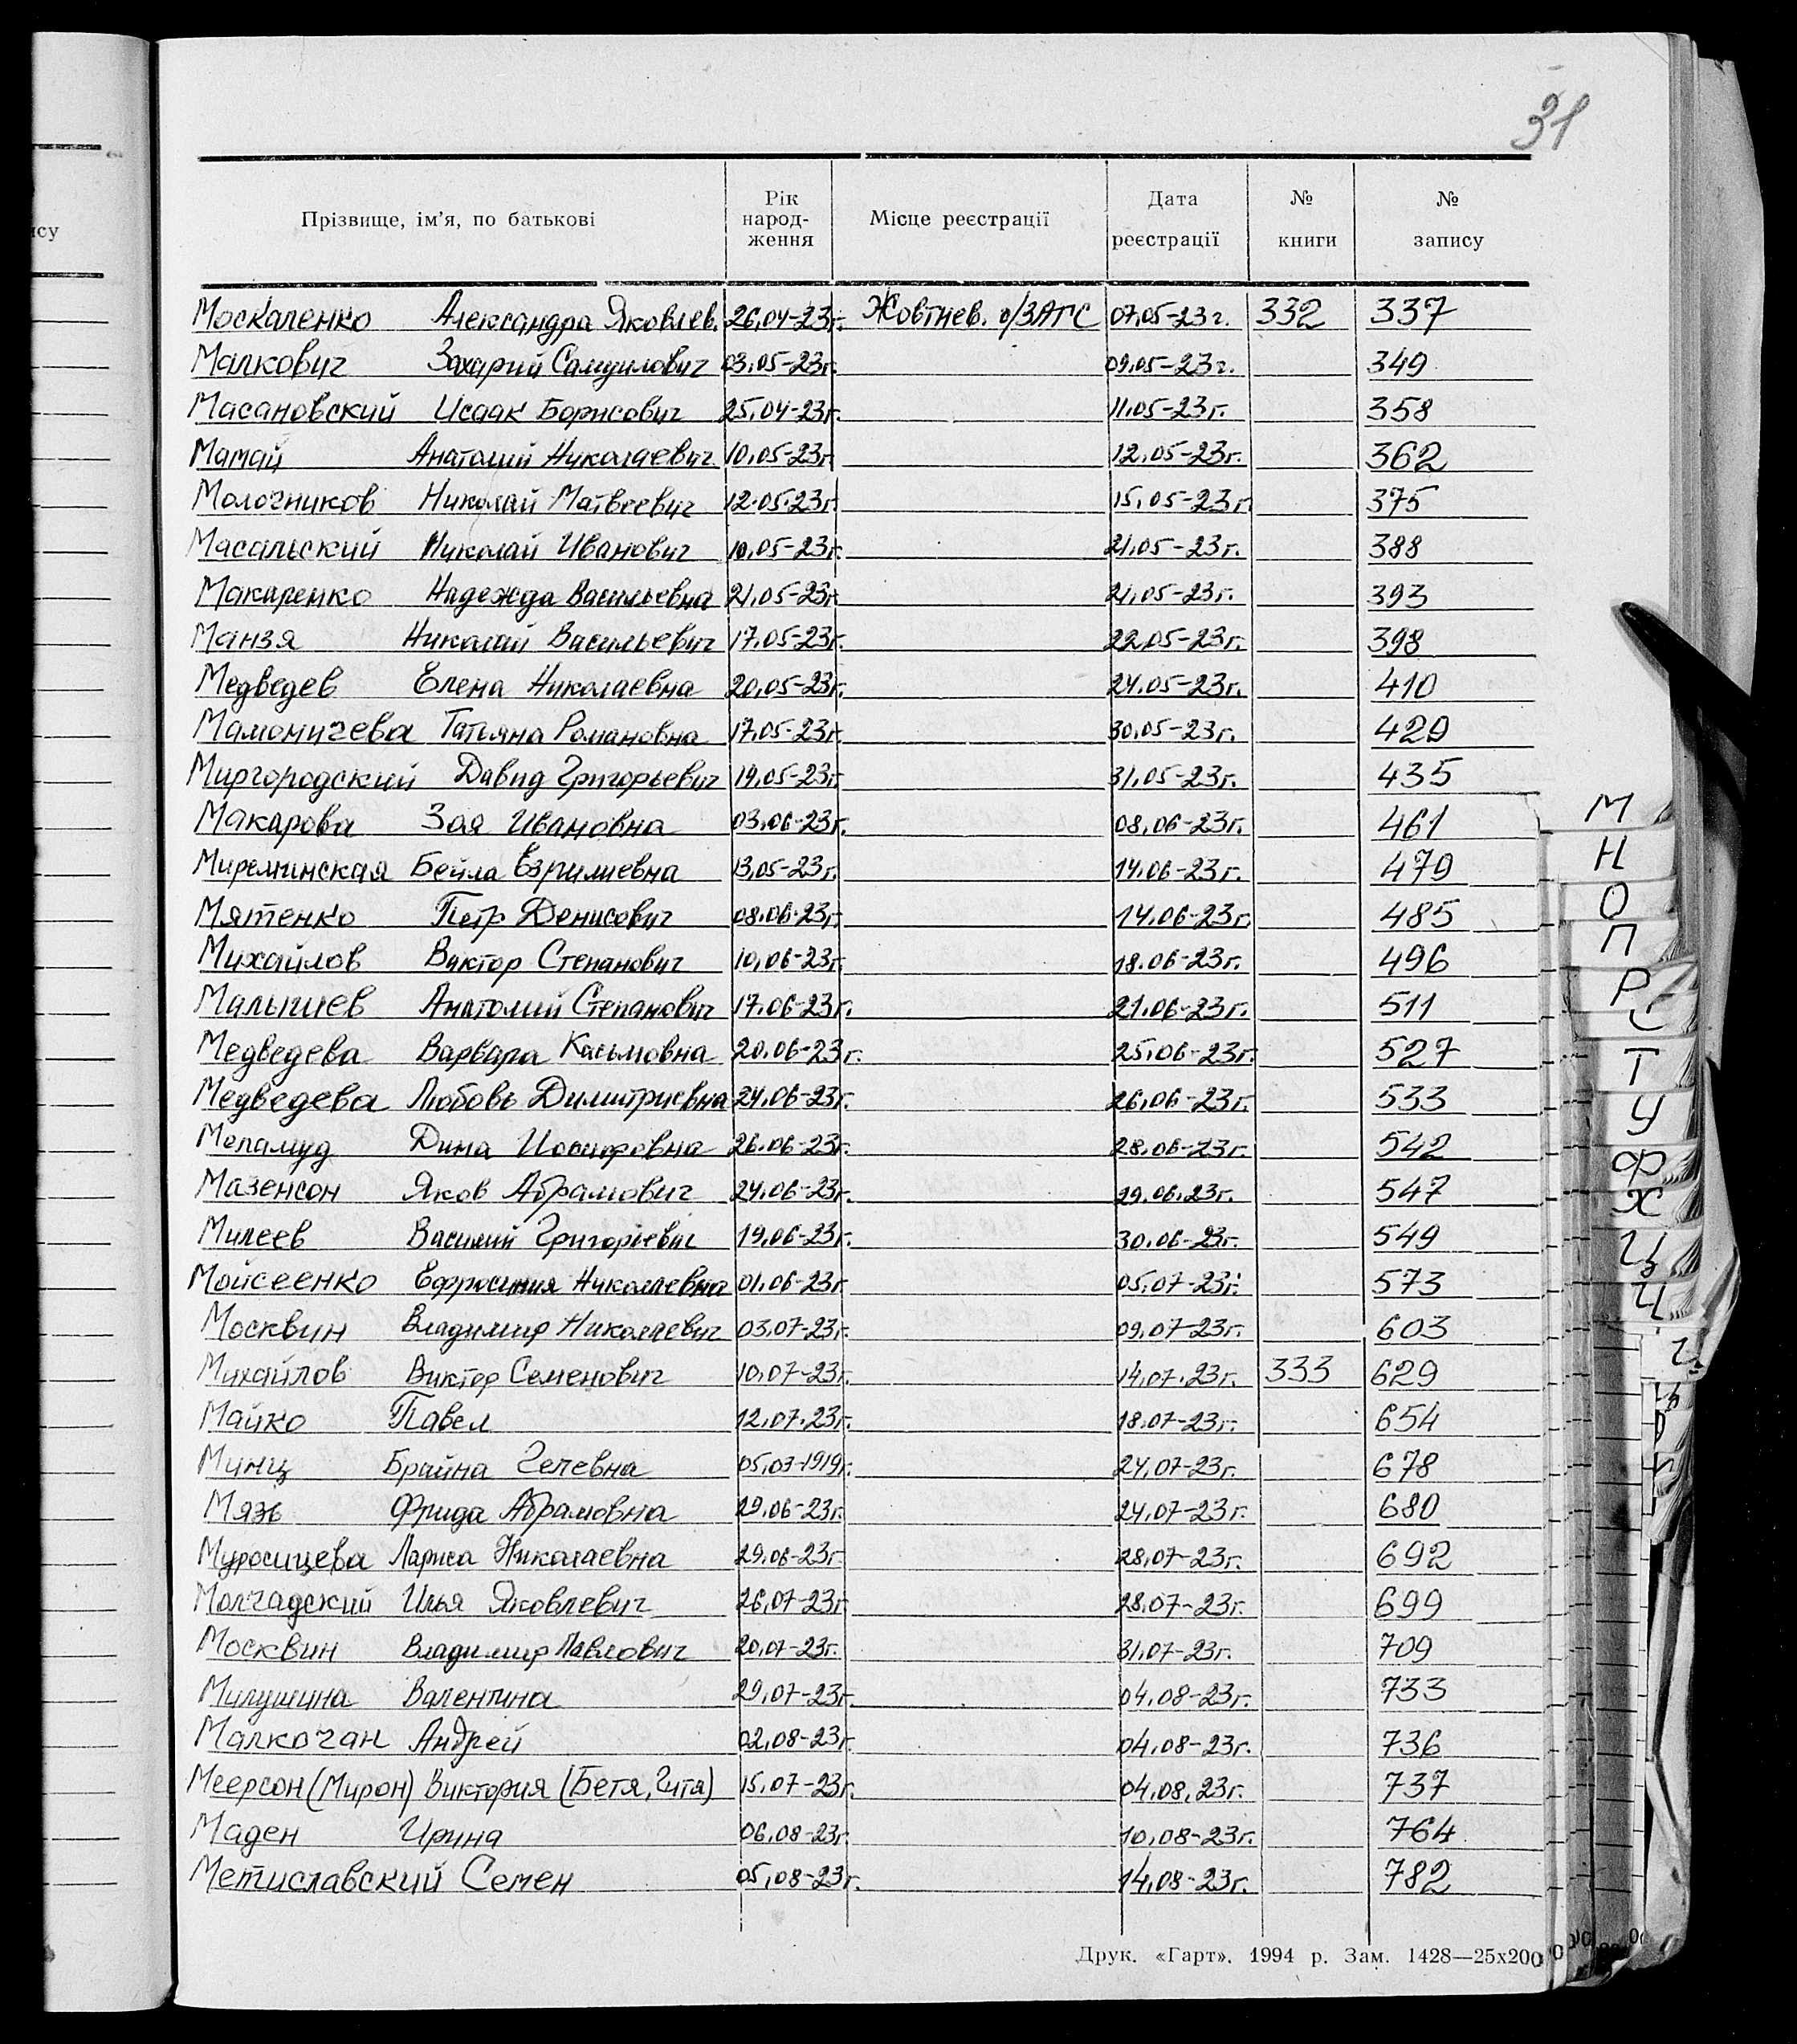 31
Прізвище, ім'я, по батькові Рік народ-ження Місце реєстрації Дата реєстрації № книги № запису
Москаленко Александра Яковлев. 26.04-23г. Жовтнев. о/ЗАГС 07.05-23г. 332 337
Малкович Захарий Самуилович 03.05-23г. 09.05-23г. 349
Масановский Исаак Борисович 25.04-23г. 11.05-23г. 358
Мамай Анатолий Николаевич 10.05-23г. 12.05-23г. 362
Молочников Николай Матвеевич 12.05.23г. 15.05-23г. 375
Масальский Николай Иванович 10.05-23г. 21.05-23г. 388
Макаренко Надежда Васильевна 21.05-23г. 21.05-23г. 393
Манзя Николай Васильевич 17.05-23г. 22.05-23г. 398
Медведев Елена Николаевна 20.05-23г. 24.05-23г. 410
Мамоничева Татьяна Романовна 17.05-23г. 30.05-23г. 429
Миргородский Давид Григорьевич 19.05-23г. 31.05-23г. 435
Макарова Зоя Ивановна 03.06-23г. 08.06-23г. 461
Бейла 13.05-23г. 14.06-23г. 479
Мятенко Петр Денисович 08.06-23г. 14.06-23г. 485
Михайлов Виктор Степанович 10.06-23г. 18.06-23г. 496
Малышев Анатолий Степанович 17.06-23г. 21.06-23г. 511
Медведева Варвара Касьмовна 20.06-23г. 25.06-23г. 527
Медведева Любовь Димитриевна 24.06-23г. 26.06-23г. 533
Меламуд Дина Иосифовна 26.06-23г. 28.06-23г. 542
Мазенсон Яков Абрамович 24.06-23г. 29.06.23г. 547
Милеев Василий Григорьевич 19.06-23г. 30.06-23г. 549
Мойсеенко Ефросиния Николаевна 01.06-23г. 05.07-23г. 573
Москвин Владимир Николаевич 03.07-23г. 09.07-23г. 603
Михайлов Виктор Семенович 10.07-23г. 14.07.23г. 333 629
Майко Павел 12.07.23г. 18.07-23г. 654
Минц Брайна Гелевна 05.03-1919г. 24.07-23г. 678
Мязь Фрида Абрамовна 29.06-23г. 24.07-23г. 680
Муросицева Лариса Николаевна 29.06-23г. 28.07-23г. 692
Молчадский Илья Яковлевич 26.07-23г. 28.07-23г. 699
Москвин Владимир Павлович 20.07-23г. 31.07-23г. 709
Милушина Валентина 29.07-23г. 04.08-23г. 733
Малкочан Андрей 02.08-23г. 04.08-23г. 736
Меерсон (Мирон) Виктория (Бетя, Гита) 15.07-23г. 04.08.23г. 737
Маден Ирина 06.08-23г. 10.08-23г. 764
Метиславский Семен 05.08-23г. 14.08-23г. 782
Друк. «Гарт». 1994 р. Зам. 1428—25х200
М
Н
О
П
Р
С
Т
У
Ф
Х
Ц
Ч